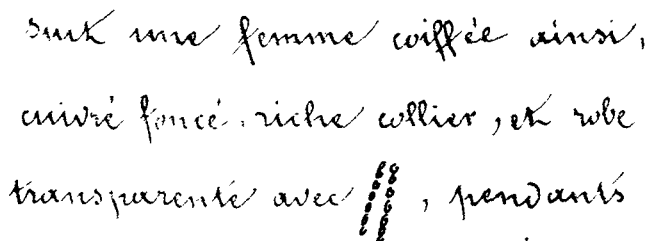 suit une femme coiffée ainsi,
cuivré foncé, riche collier, et robe
transparente avec , pendants